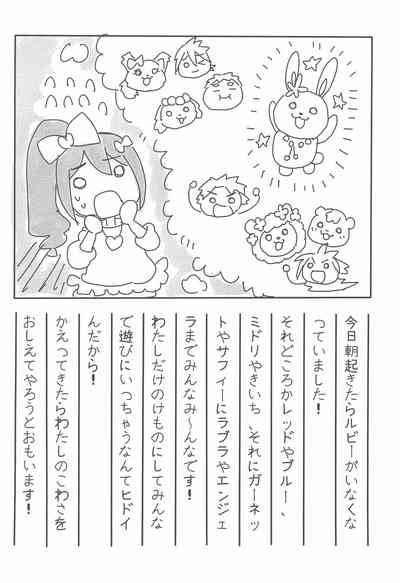 今日朝起きたらルビーがいなくな
っていました！
それどころかレッドやブルー、
ミドリやきいち、それにガーネッ
トやサフィーにラブラやエンジェ
ラまでみんなみ〜んなです！
わたしだけのけものにしてみんな
で遊びにいっちゃうなんてヒドイ
んだから！
かえってきたらわたしのこわさを
おしえてやろうとおもいます！